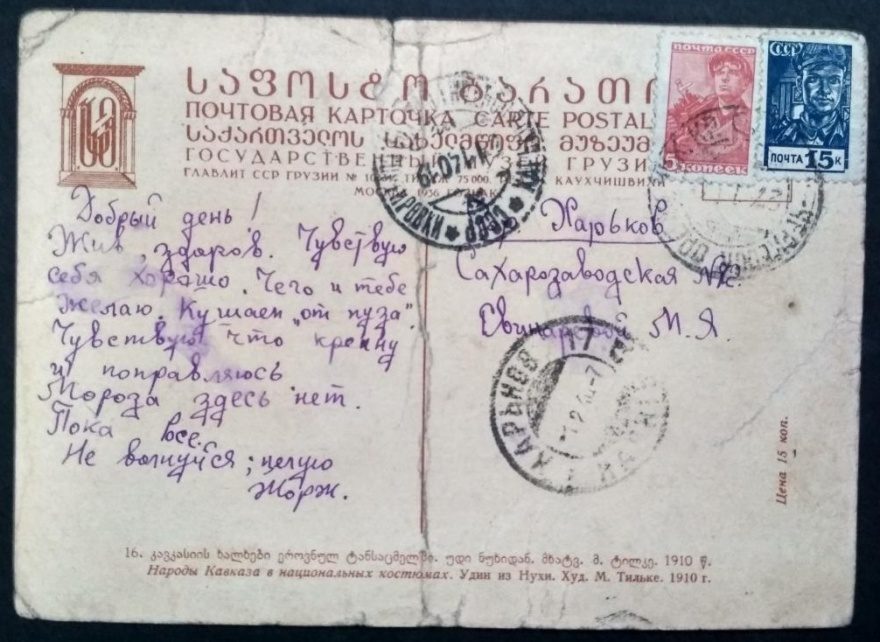 საფოსტო ბარათი
ПОЧТОВАЯ КАРТОЧКА CARTE POSTALE
საქართველოს სახელმწიფო მუზეუმი
ГОСУДАРСТВЕННЫЙ МУЗЕЙ ГРУЗИИ
ГЛАВЛИТ ССР ГРУЗИИ № ТИРАЖ 75 000. КАУХЧИШВИЛИ
МОСКВА 1936
ПОЧТА СССР
5 КОПЕЕК
СССР
ПОЧТА 15К
Добрый день!
Жив, здоров. Чувствую
себя хорошо. Чего и тебе
желаю. Кушаем "от пуза".
Чувствую что крепну
и поправляюсь
Мороза здесь нет.
Пока все.
Не волнуйся; целую
Жорж.
Харьков
Сахарозаводская №
М.Я
ХАРЬКОВ 17
СССР
Цена 15 коп.
16. კავკასიის ხალხები ეროვნულ ტანსაცმელში. უდი ნუხიდან. მხატვ. მ. ტილკე. 1910 წ.
Народы Кавказа в национальных костюмах. Удин из Нухи. Худ. М. Тильке. 1910 г.